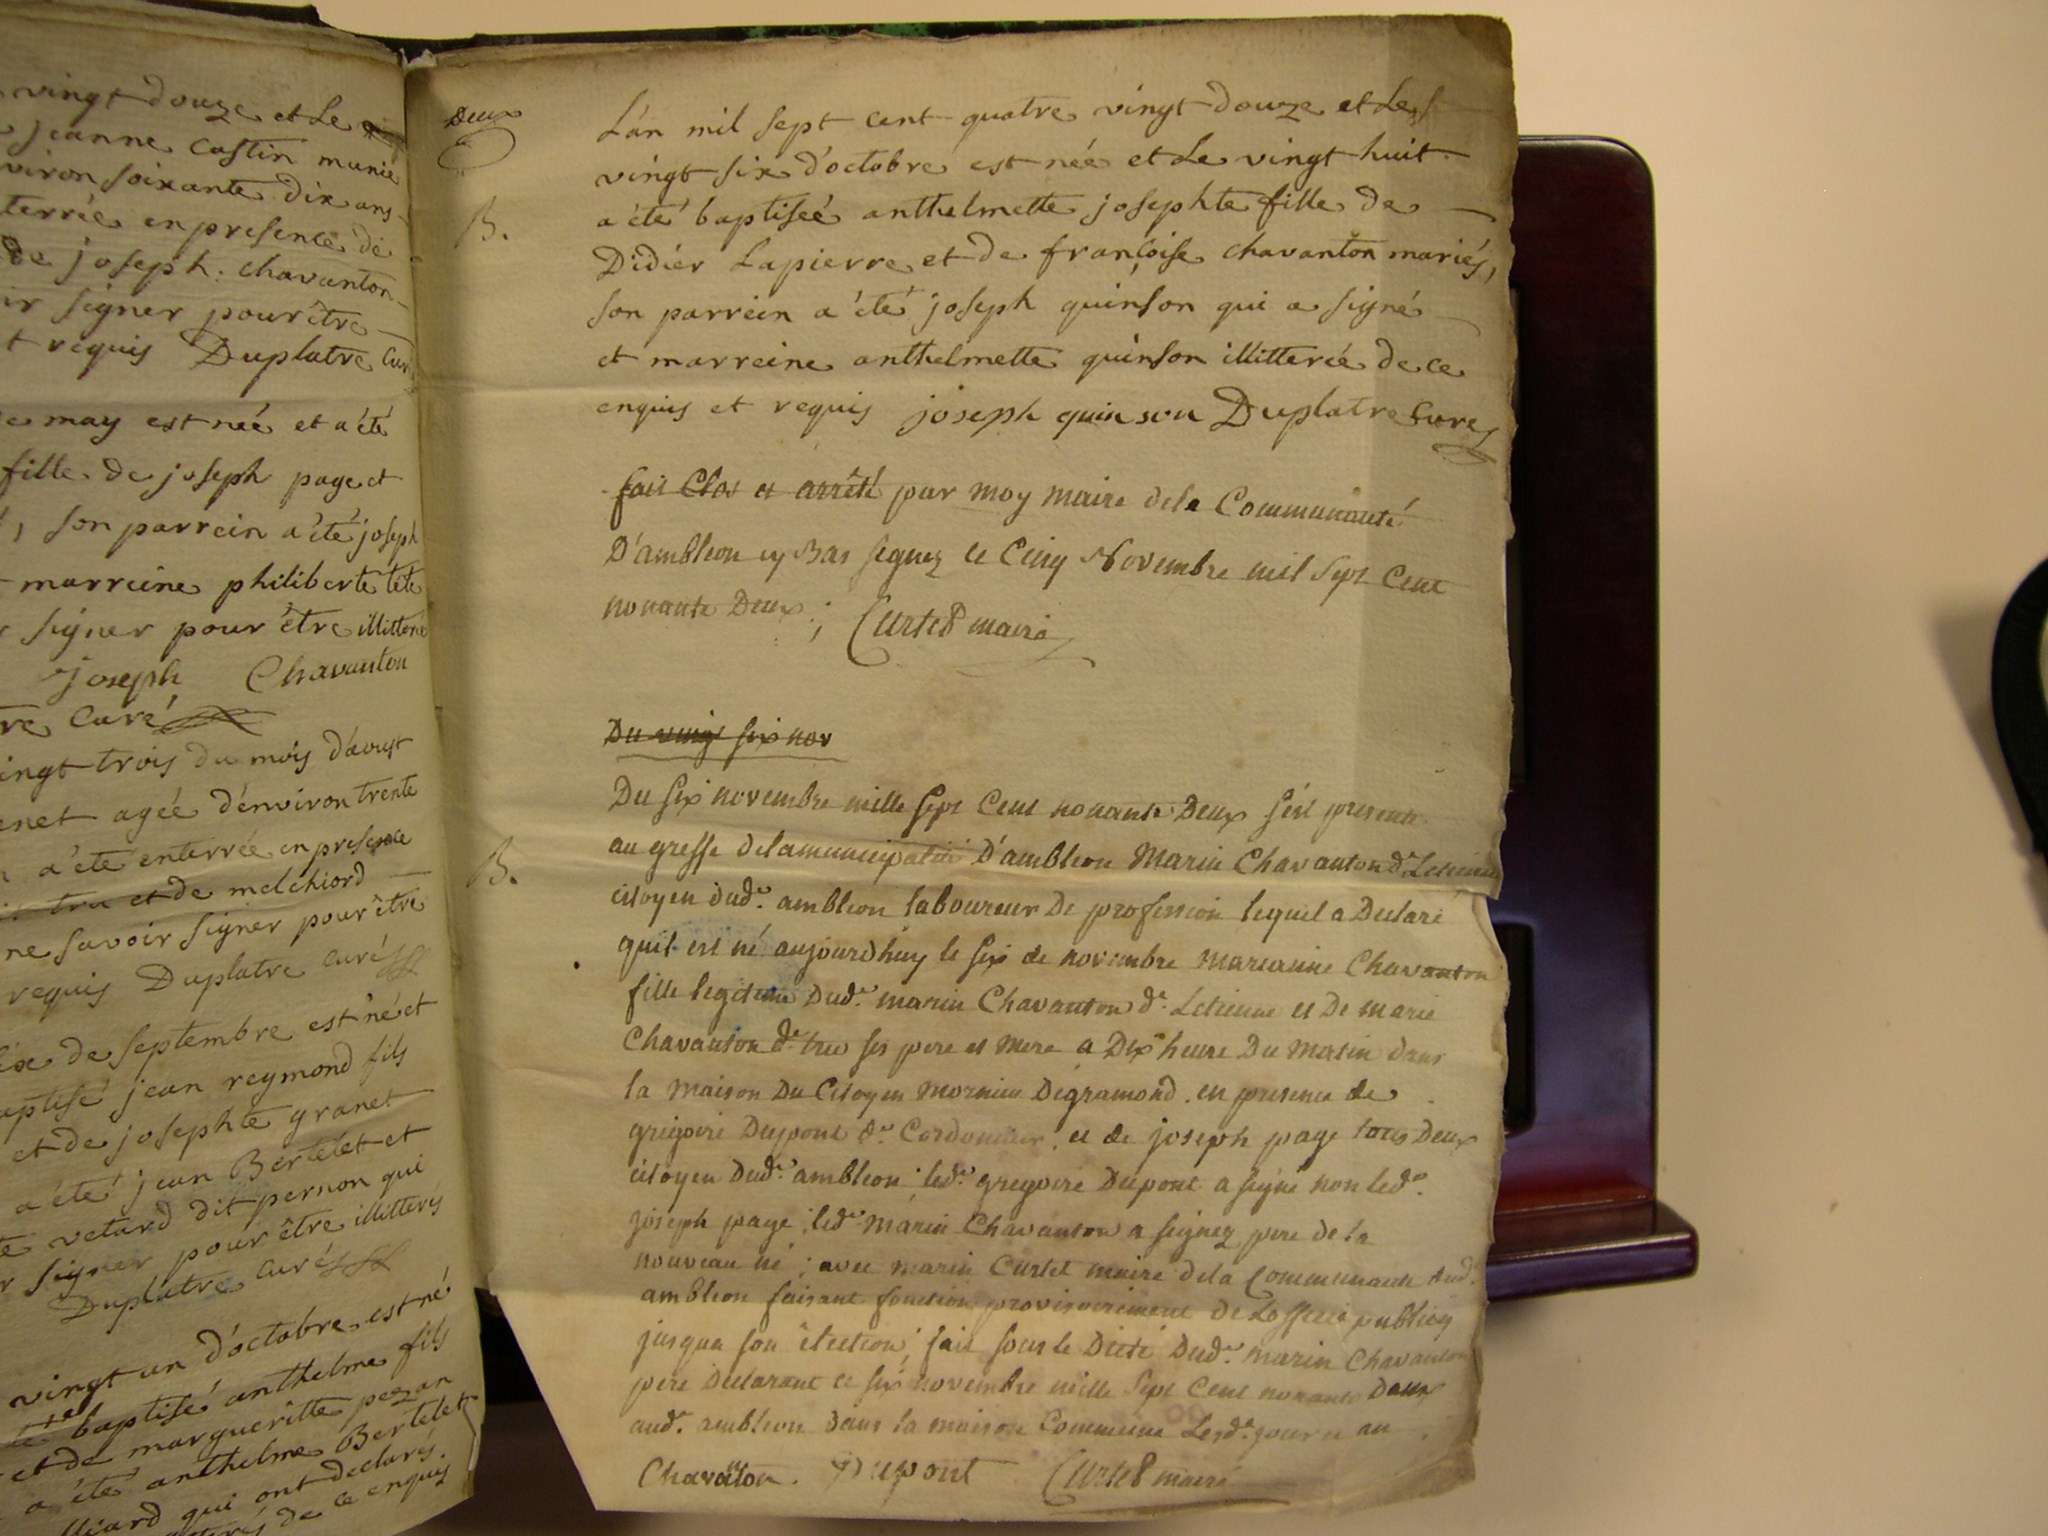 vingt douze et Le
jeanne Castin munie
viron soixante dix ans
terrée en presence de
de joseph chavanton
ir signer pour être
t requis Duplatre Curé
e may est née et a été
fille de joseph page et
son parrein a été joseph
marreine philiberte tête
signer pour être illitteré
joseph Chavanton
re Curé
ingt trois du mois d'avust
enet agée d'environ trente
a été enterrée en presence
tru et de melchiord
ne savoir signer pour être
requis Duplatre curé
ix de septembre est né et
aptisé jean reymond fils
et de josephte granet
a été jean Bertelet et
te vetard dit pernon qui
r signer pour être illitterés
Duplatre curé
vingt un d'octobre est né
té baptisé anthelme fils
et de margueritte pezan
a été anthelme Bertelet
lliard qui ont declarés
de ce enquis
Deux
L'an mil sept cent quatre vingt douze et Le
vingt six d'octobre est née et Le vingt huit
B. a été baptiseé anthelmette josephte fille de
Didier Lapierre et de françoise chavanton mariés,
son parrein a été joseph quinson qui a signé
et marreine anthelmette quinson illitterée de ce
enquis et requis joseph quinson Duplatre Curé
fait Clos et arrêté par moy maire dela Communauté
D'ambleon cy Bas signez le Cinq Novembre mil sept Cent
nonante Deux ; Curtet maire
Du vingt six nov
Du six novembre mille sept Cent nonante Deux s'est presente
au greffe dela municipalité D'ambleon Marin Chavanton de Letienne
B. citoyen dude ambleon laboureur De profession lequel a Declaré
quil est né aujourdhuy le six de novembre marianne Chavanton
fille legitime Dude marin Chavanton de Letienne et De marie
Chavanton de tru ses pere et mere a Dix heure Du Matin dans
la maison Du Citoyen mornieu Degramond en presence de
gregoire Dupont de Cordonnier et de joseph page tous Deux
citoyen Dude ambleon lede gregoire Dupont a signé non lede
joseph page lede marin Chavanton a signez pere de la
nouveau né ; avec marin Curtet maire dela Communauté dud.
ambleon faisant fonction provisoirement de Lofficié publicq
jusqua son election, fait sous le Dicté Dude marin Chavanton
pere Declarant ce six novembre mille sept Cent nonante Deux
aude ambleon dans la maison Commune Lesde jour et an
Chavanton. Dupont Curtet maire